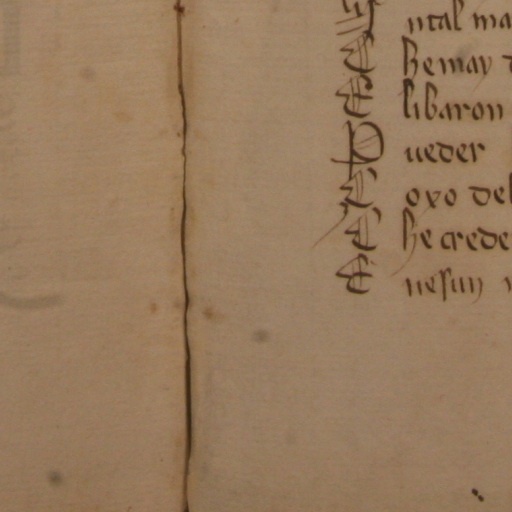 ntal ma
E he may
E libaron
P ueder
E oxo del
E he crede
E nesun